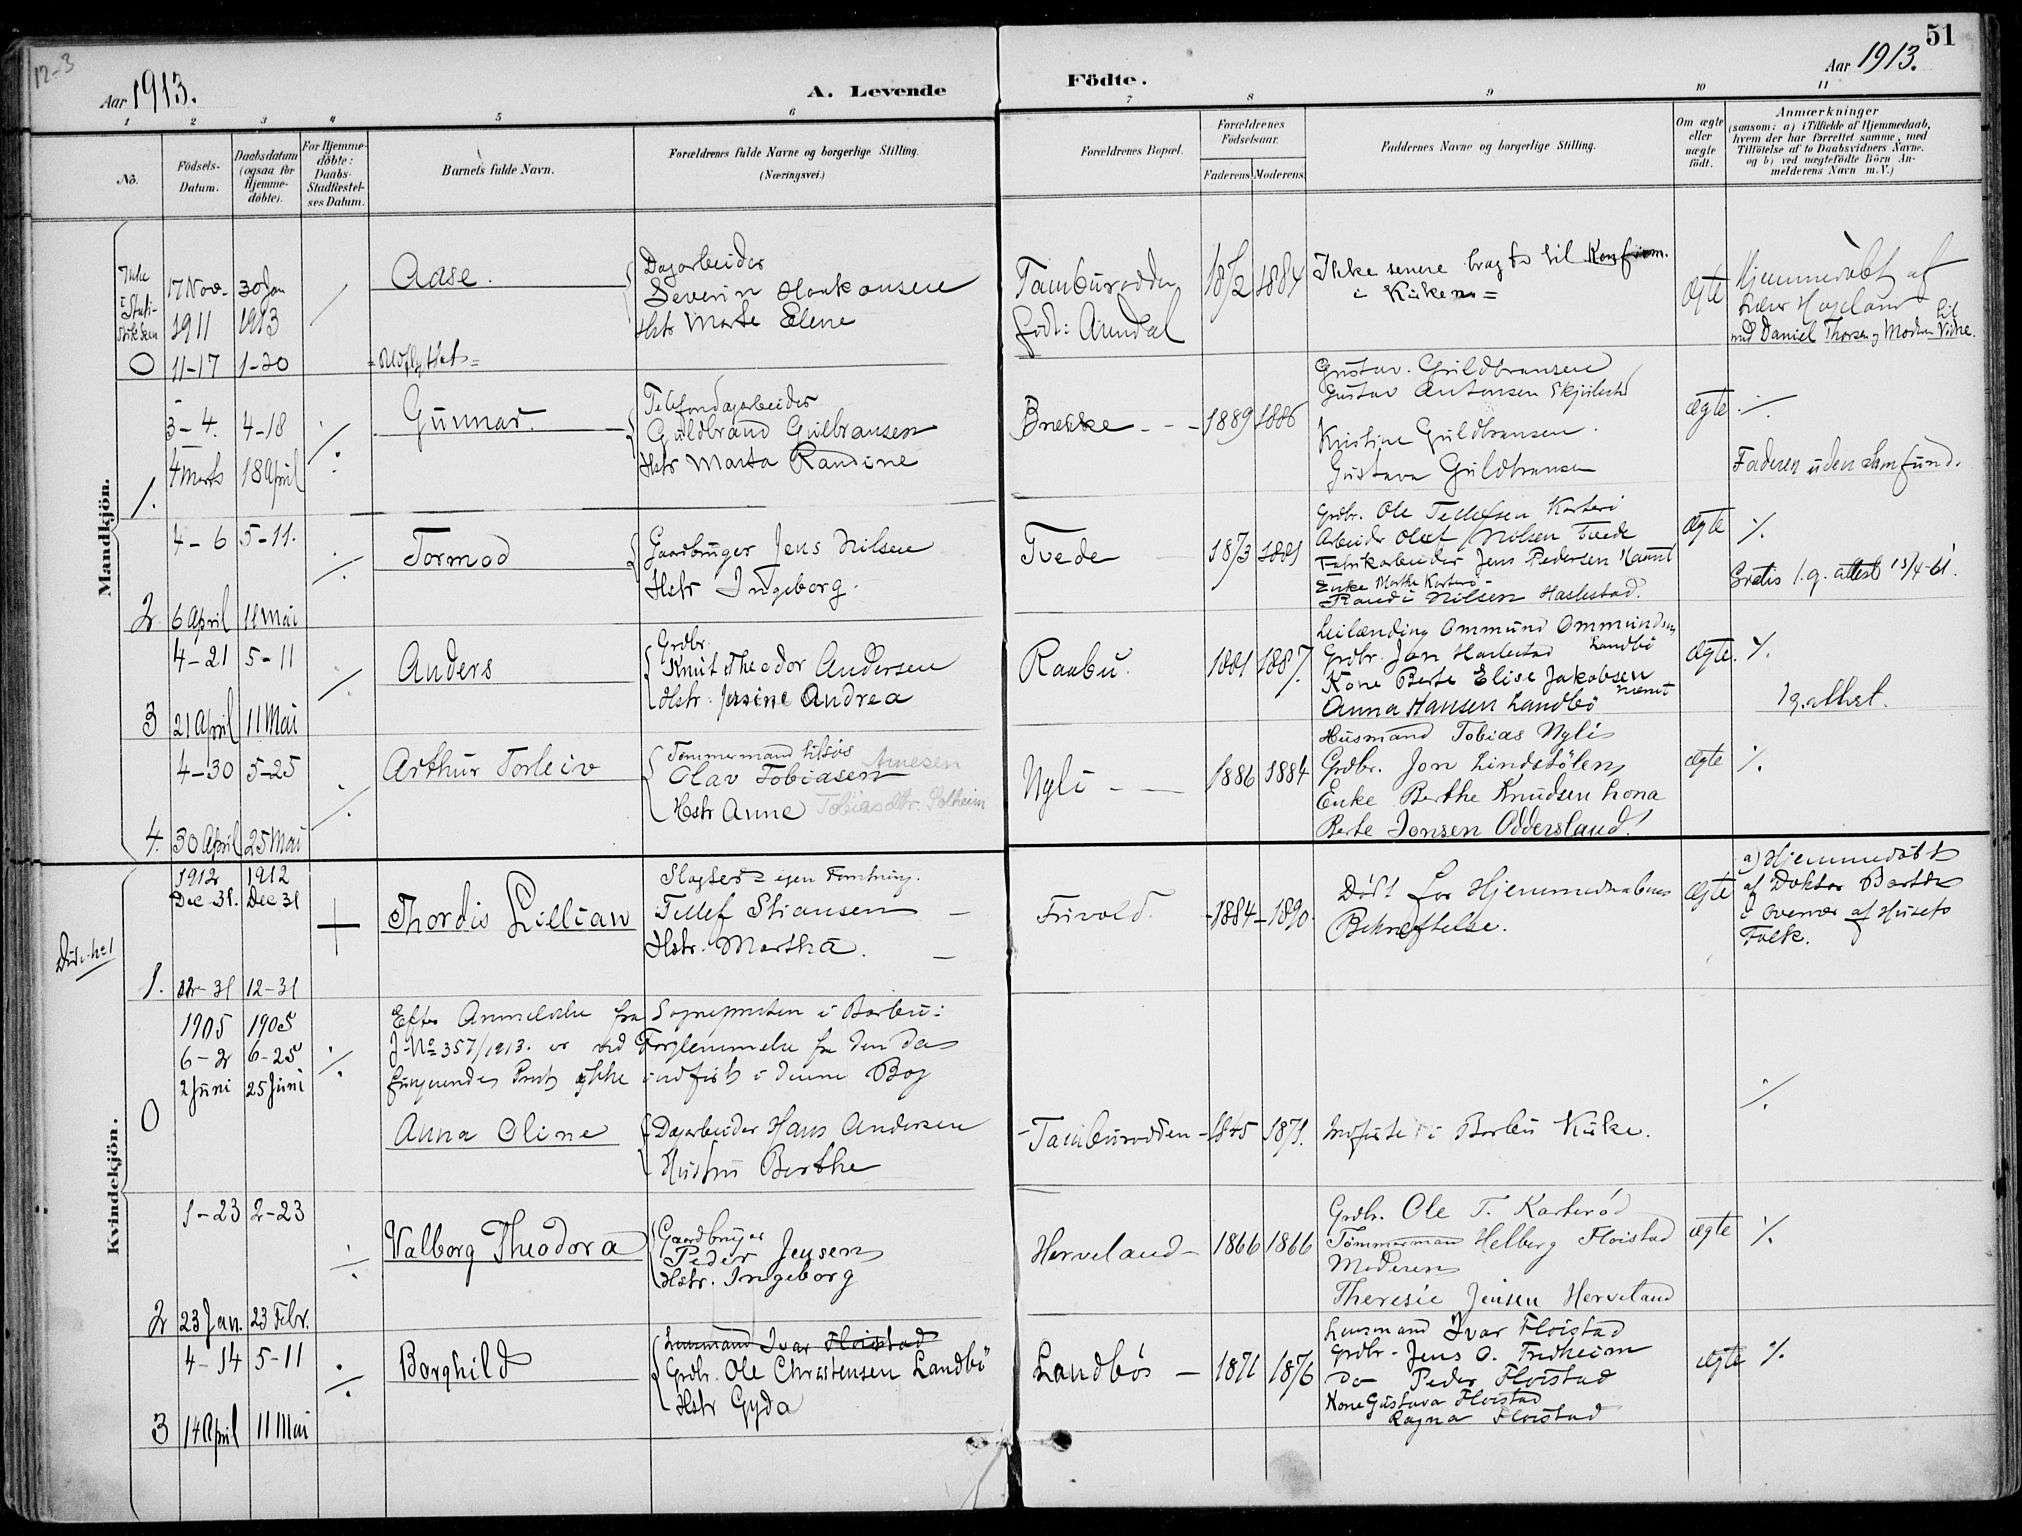 12-3
51
Aar 1913.
A. Levende
Födte.
Aar 1913.
1 2 3 4 5 6 7 8 9 10 11
No.
Födsels-Datum.
Daabsdatum (ogsaa for Hjemme-döbte).
For Hjemme-döbte: Daabs-Stadfæstel-ses Datum.
Barnets fulde Navn.
Forældrenes fulde Navne og borgerlige Stilling.
(Næringsvei.)
Forældrenes Bopæl.
Forældrenes Födselsaar.
Faderens Moderens
Faddernes Navne og borgerlige Stilling.
Om ægte eller uægte født.
Anmærkninger
(saasom: a) i Tilfælde af Hjemmedaab,
hvem der har forrettet samme, med
Tilföielse af to Daabsvidners Navne,
og b) ved uægtefödte Börn An-
melderens Navn m. V.)
Mandkjön.
Ikke i Stati-stikken
17 Nov. 30 Jan
1911 1913
0 11-17 1-30
Aase.
Dagarbeider
Severin Haakonsen
Hstr Marte Elene
Tamburodden
født: Arendal
1872 1884
Ikke senere bragt til Konfirm.
i Kirken =
ægte
Hjemmedøbt af
Lærer Hageland
med Daniel Thorsen og Moderen til Vidne.
3-4. 4-18
4 Marts 18 April
1.
Gunnar.
Telefondagarbeider
Guldbrand Gulbransen
Hstr Marta Randine
Brekke
1889 1886
Gustav. Guldbransen
Gustav Antonsen Skjulestad
Kristine Guldbransen.
Gustava Guldbransen
ægte ./.
Faderen uden Samfund.
4-6 5-11.
2 6 April 11 Mai
Tormod
Gaardbruger Jens Nilsen
Hstr Ingeborg.
Tvede
1873 1881
Grdbr. Ole Tellefsen Karterö
Arbeider Olaf Nilsen Tvede
Fabrikarbeider Jens Pedersen
Enke Marthe Karterö
Randi Nilsen Haslestad.
ægte ./.
Gratis l.g. attest 13/4-61.
4-21 5-11
3 21 April 11 Mai
Anders
Grdbr.
Knut Theodor Andersen
Hstr. Jensine Andrea
Raabu.
1881 1887.
Leilænding Ommund Ommundsen
Landbö
Grdbr. Jon Haslestad
Kone Berte Elise Jakobsen
Anna Hansen Landbö
ægte. ./.
l g. attest.
4-30 5-25
4. 30 April 25 Mai
Arthur Torleiv
Tømmermand tilsjös
Olav Tobiasen Arnesen
Hstr Anne Tobiasdtr. Solheim
Nyli
1886 1884
Husmand Tobias Nyli
Grdbr. Jon Lindstølen
Enke Berthe Knudsen Lona
Berte Jonsen Oddersland.
ægte ./.
Kvindekjön.
1912 1912
Dec 31. Dec 31
1. 12-31 12-31
Thordis Lillian
Slagter egen Forretning.
Tellef Stiansen
Hstr. Martha.
Frivold.
1884 1890
Död før Hjemmedaabens
Bekræftelse.
ægte
a) Hjemmedøbt
af Doktor Barth
i Overvær af Husets
Folk.
1905 1905
6-2 6-25
2 Juni 25 Juni
0
Efter Anmeldelse fra Sognepresten i Barbu:
J-No 357/1913. er ved Forglemmelse fra den da
fungerende Prest ikke indført i denne Bog
Anna Oline
Dagarbeider Hans Andersen
Hustru Berthe
Tamburodden
1845 1871.
Indførte i Barbu Kirke.
./.
1-23 2-23
2 23 Jan. 23 Febr.
Valborg Theodora
Gaardbruger
Peder Jensen
Hstr. Ingeborg
Herveland
1866 1866
Grdbr. Ole T. Karterød
Tömmermand Helberg Floistad
Moderen
Theresie Jensen Herveland
ægte ./.
4-14 5-11
3 14 April 11 Mai
Borghild
Lensmand Ivar Floistad
Grdbr. Ole Christensen Landbö
Hstr Gyda
Landbö
1871 1876
Lensmand Ivar Floistad
Grdbr. Jens O. Fredheim
Do Peder Floistad
Kone Gustava Floistad
Ragna Floistad
ægte ./.